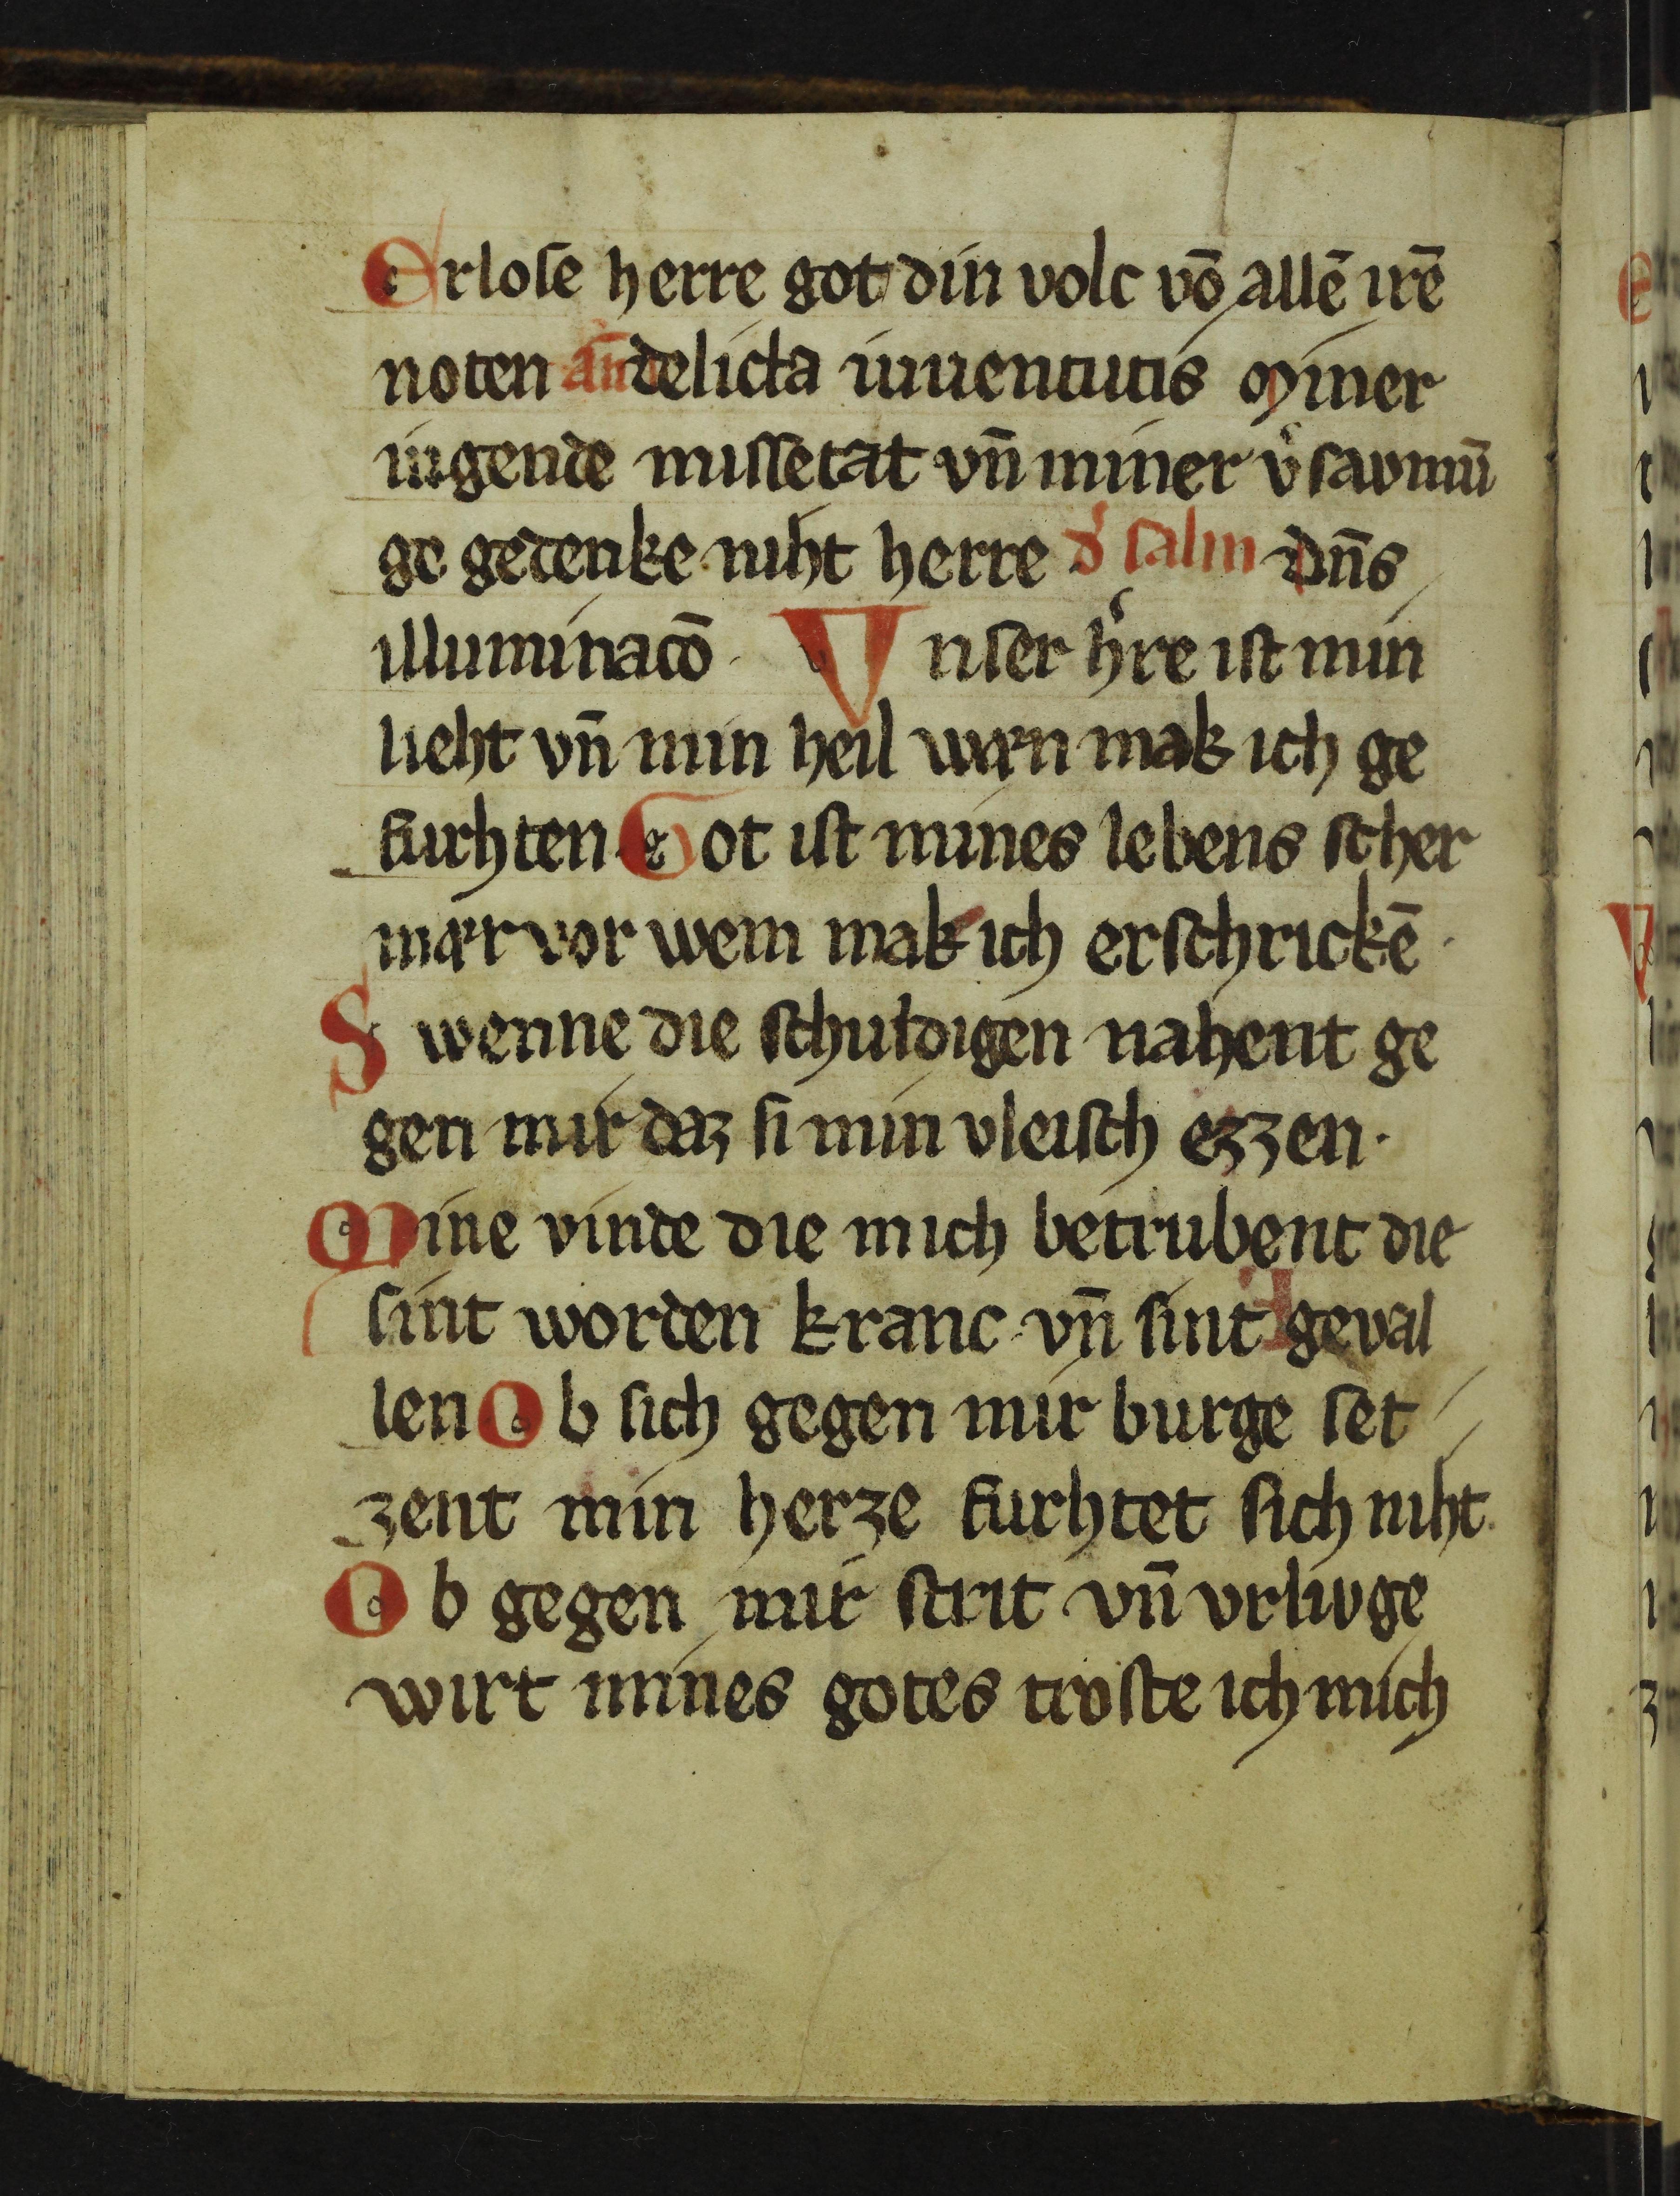 Erlose herre got din volc võ allẽ irẽ
noten añ delicta iuuentutis Miner
iugende missetat vñ miner v͛sawmũ
ge gedenke niht herre d͛ salm Dñs
illuminacõ · Vnser h͛re ist min
lieht vñ min heil wen mak ich ge
furhten. Got ist mines lebens scher
mær vor wem mak ich erschrickẽ ·
Swenne die schuldigen nahent ge
gen mir daz si min vleisch ezzen·
Mine vinde die mich betrubent die
sint worden kranc vñ sint geval
len Ob sich gegen mir burge set
zent min herze furhtet sich niht.
Ob gegen mir strit vñ vrlivge
wirt mines gotes troste ich mich